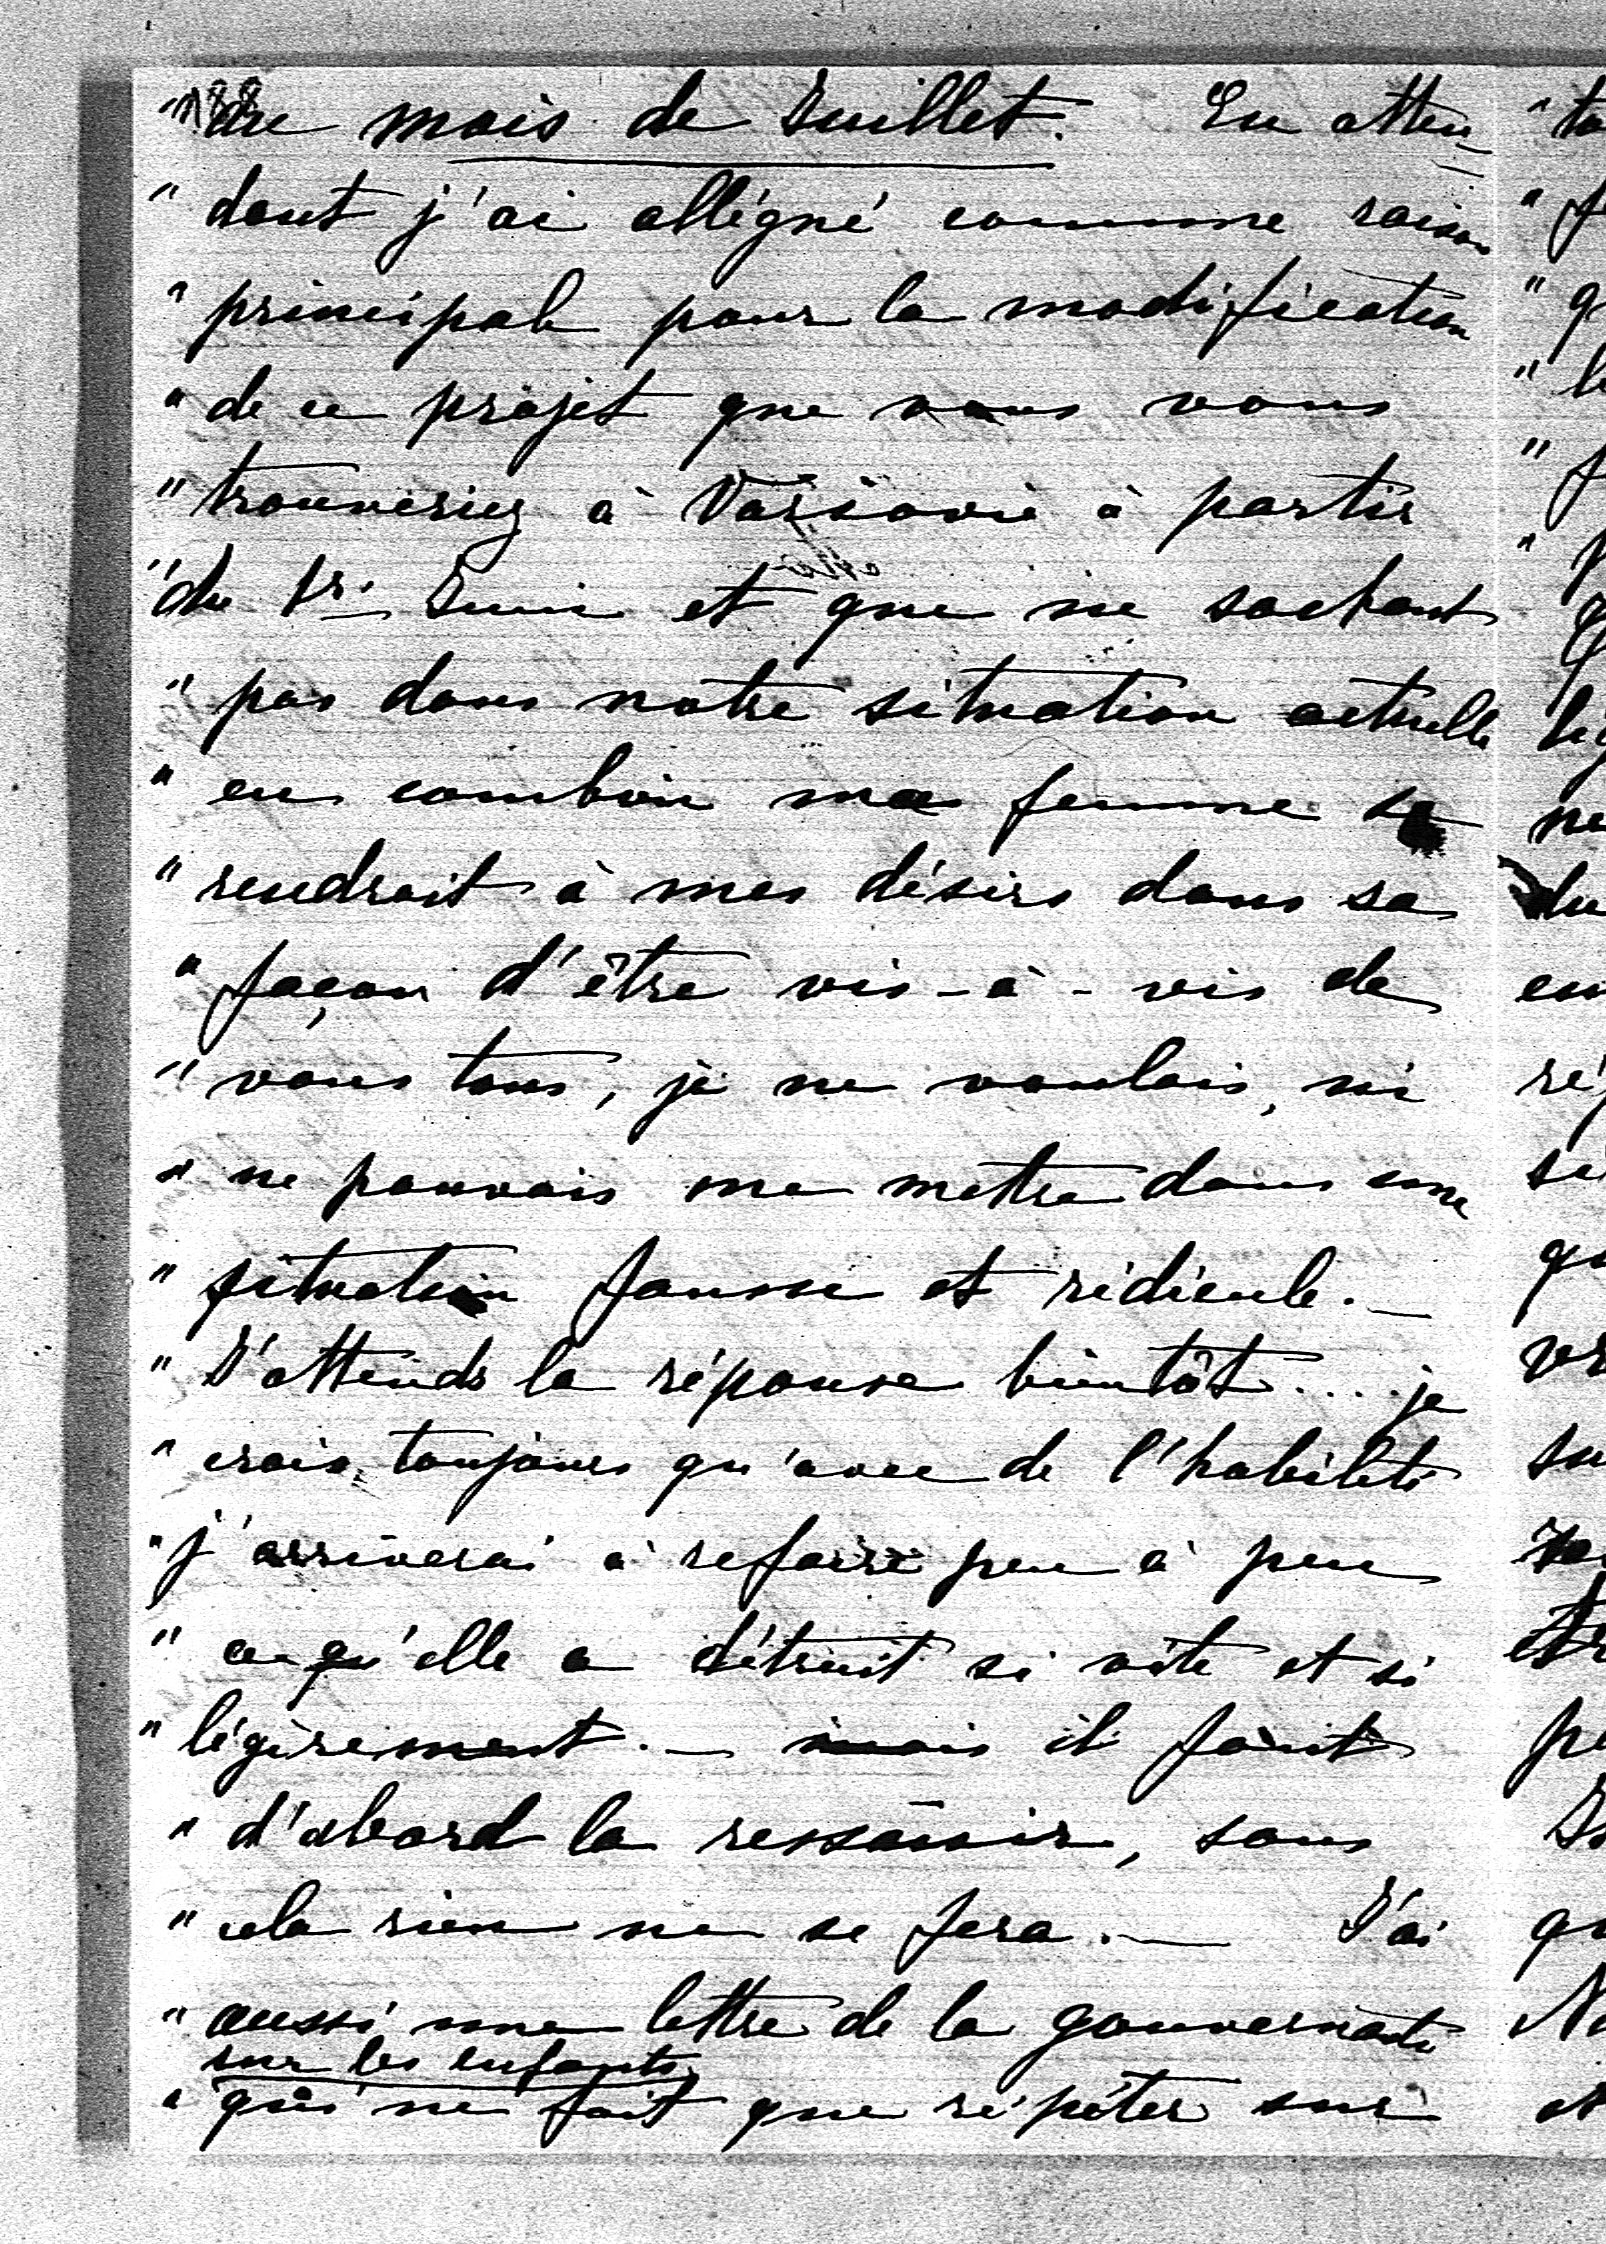 "du mois de Juillet. En atten-
"dant j'ai allégué comme raison
"principale pour la modification
"de ce projet que vous vous
"trouveriez à Varsovie à partir
"du 1r. Juin et que ne sachant
"pas dans notre situation actuelle
"en combien ma femme se
"rendrait à mes désirs dans sa
"façon d'être vis-à-vis de
"vous tous, je ne voulais, ni
"ne pouvais me mettre dans une
"situation fausse et ridicule. —
"J'attends la réponse bientôt .... je
"crois toujours qu'avec de l'habileté
"j'arriverai à refaire peu à peu
"ce qu'elle a détruit si vite et si
"légèrement. — mais il faut
"d'abord la ressaisir, sans
"cela rien ne se fera. — J'ai
"aussi une lettre de la gouvernante
sur les enfants
"qui ne fait que répéter sur